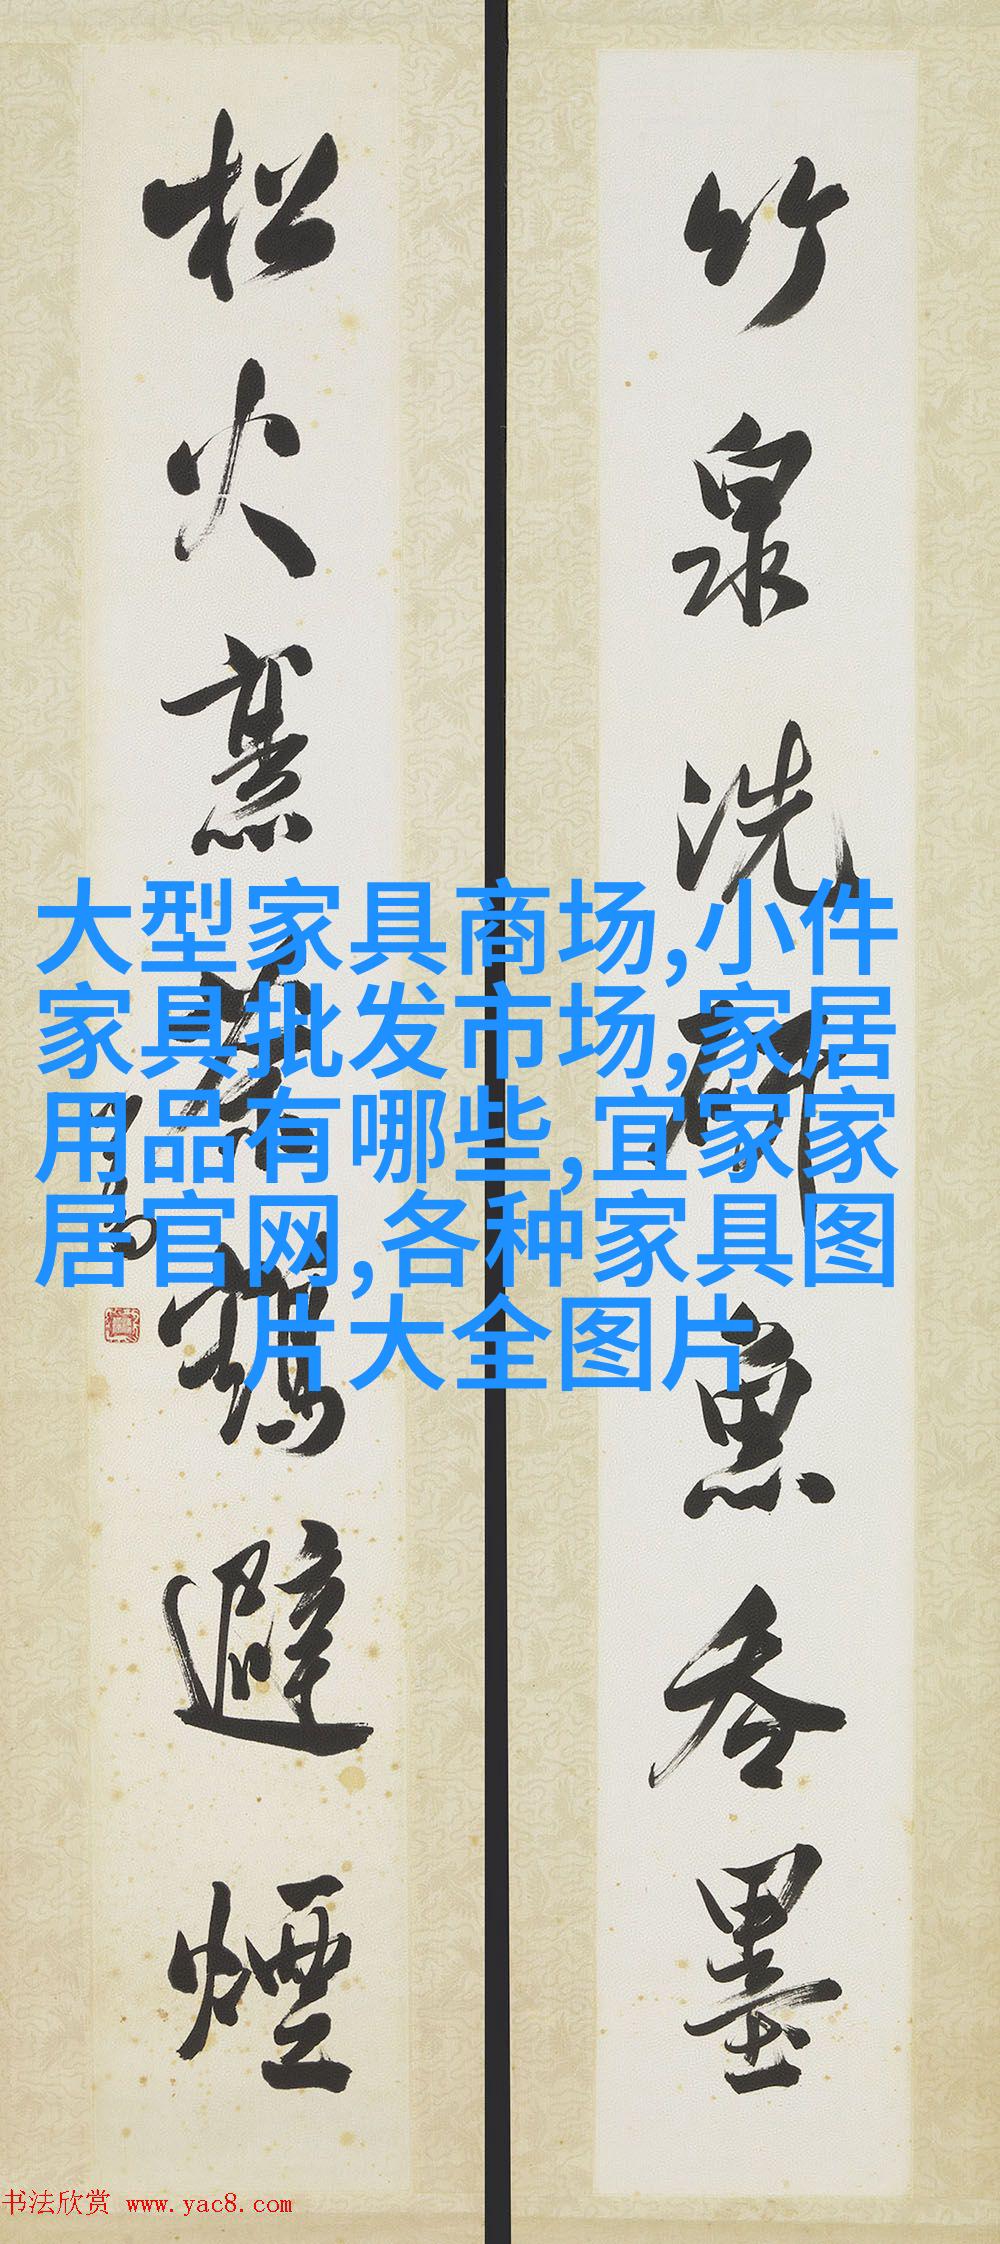 竹泉洗研魚吞墨
松火烹茶鶴避煙
大型家具商场,小件
家具批发市场,家居
用品有哪些,宜家家
居官网,各种家具图
片大全图片
书法欣赏 www.yac8.com